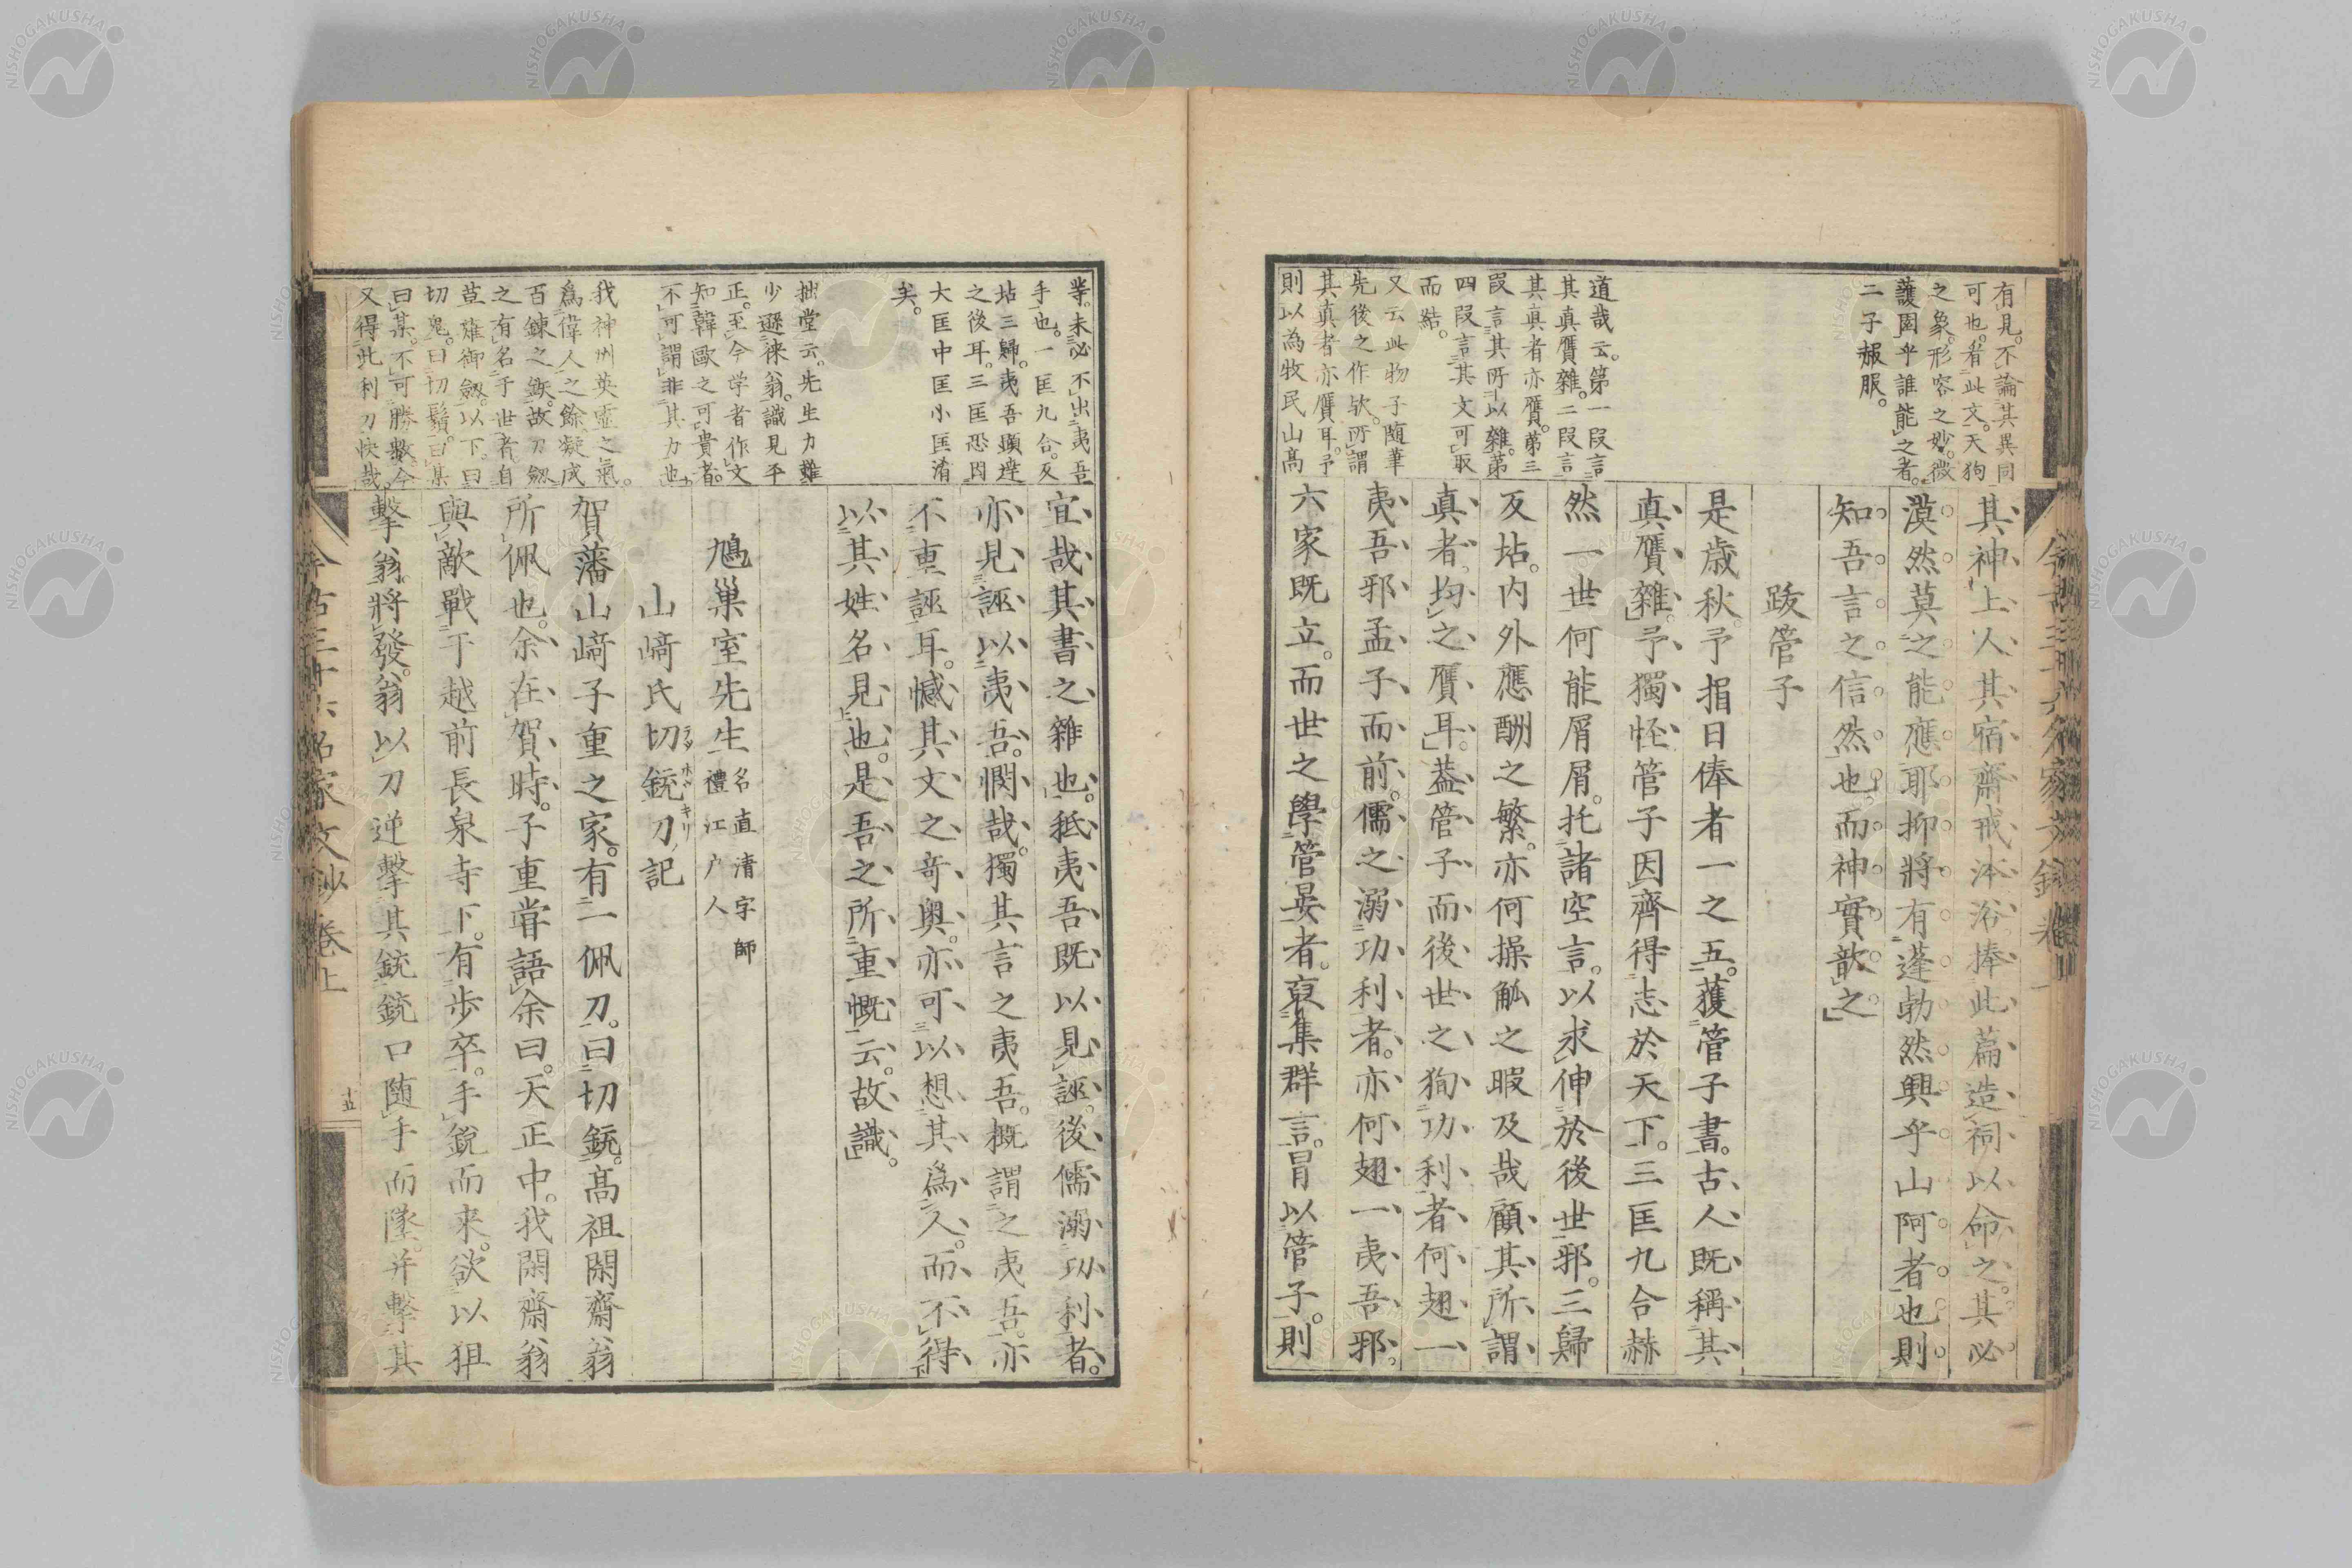 有見。不論其異同
可也。看此文。天狗
之象。形容之妙。微
蘐園乎誰能之者。
二子赧服。
道哉云。第一段言
其真贋雜。二段言
其真者亦贋。第三
段言其所以雜。第
四段言其文可取
而結。
又云此物子随筆
先後之作欤。所謂
其真者亦贋耳。予
則以為牧民山高
其神上人其宿齋戒沐浴捧此篇造祠以命之。其必
漠然莫之能應耶抑將有蓬勃然興乎山阿者也則
知吾言之信然也而神實歆之
跋管子
是歳秋。予捐日俸者一之五。獲管子書。古人既稱其
真贋雜。予獨怪管子因齊得志於天下。三匡九合赫
然一世何能屑屑。托諸空言。以求伸於後世邪。三歸
反坫。内外應酬之繁。亦何操觚之暇及哉顧其所謂
真者。均之贋耳。葢管子而後世之狥功利者何翅一
夷吾邪。孟子而前。儒之溺功利者。亦何翅一夷吾邪。
六家既立。而世之學管晏者。裒集群言。冒以管子。則
今古三十六名家文鈔卷上
等。未必不出夷吾
手也。一匡九合。反
坫三歸。夷吾顕達
之後耳。三匡恐因
大匡中匡小匡淆
矣。
拙堂云。先生力雖
少遜徠翁。識見平
正。至今学者作文
知韓歐之可貴者。
不可謂非其力也
我神州英霊之氣。
為偉人之餘凝成
百錬之鉄。故刀劔
之有名于世者。自
草薙御劔。以下。曰
切鬼。曰切鬚。曰某
曰某。不可勝数。今
又得此利刀快哉。
宜哉其書之雜也。秪夷吾既以見誣。後儒溺功利者。
亦見誣以夷吾。憫哉。獨其言之夷吾。概謂之夷吾。亦
不重誣耳。憾其文之竒奥。亦可以想其為人。而不得
以其姓名見也。是吾之所重慨云。故識。
鳩巢室先生 名直清字師禮江戸人
山﨑氏切銃刀記
賀藩山﨑子重之家。有一佩刀。曰切銃。髙祖閑齋翁
所佩也。余在賀時。子重甞語余曰。天正中。我閑齋翁
與敵戰于越前長泉寺下。有歩卒。手銃而来。欲以狙
擊翁。將發。翁以刀逆擊其銃。銃口随手而墜。并擊其
今古三十六名家文鈔卷上
十五